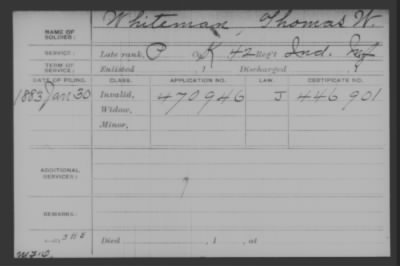 NAME OF SOLDIER: Whiteman, Thomas W.
SERVICE: Late rank, P Co. K 42 Reg't Ind. Inf
TERM OF SERVICE: Enlisted , 1 Discharged , 1
DATE OF FILING. CLASS. APPLICATION NO. LAW. CERTIFICATE NO.
1883 Jan 30 Invalid, 470946 J 446901
Widow,
Minor,
ADDITIONAL SERVICES:
REMARKS:
Died , 1 , at